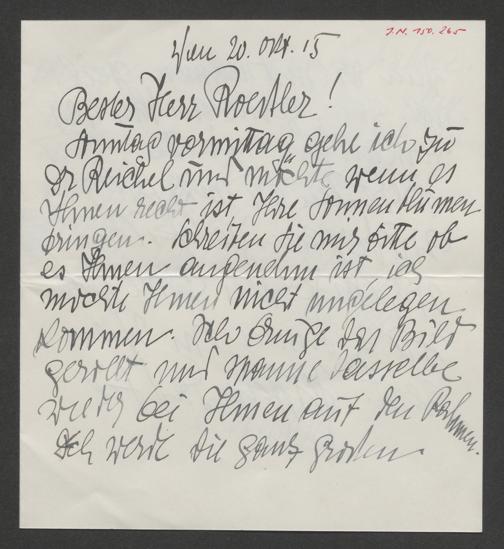 J.N. 150.265
Wien 20. Okt. 15
Bester Herr Roessler!
Sonntag vormittag gehe ich zu
Dr Reichel und möchte, wenn es
Ihnen recht ist, Ihre Sonnenblumen
bringen. Schreiben Sie mir bitte ob
es Ihnen angenehm ist, ich
möchte Ihnen nicht ungelegen
kommen. Ich bringe das Bild
gerollt und spanne dasselbe
wieder bei Ihnen auf den Rahmen.
Ich werde die ganz großen